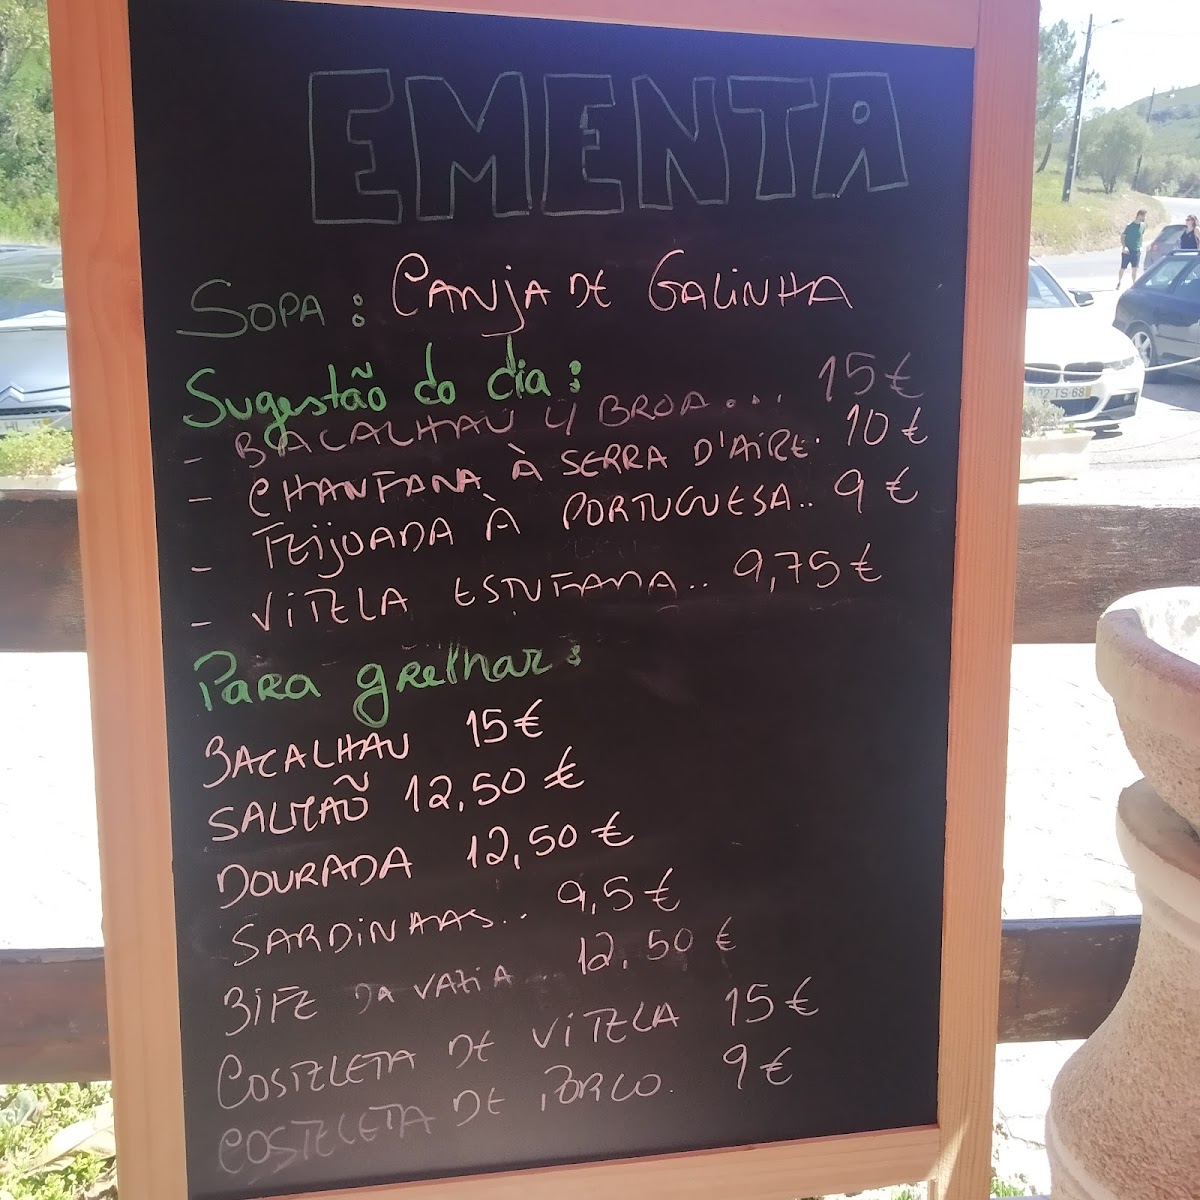 EMENTA
SOPA: CANJA DE GALINHA
Sugestão do dia:
- BACALHAU C/ BROA... 15€
- CHANFANA À SERRA D'AIRE. 10€
- FEIJOADA À PORTUGUESA.. 9€
- VITELA ESTUFADA.. 9,75€
Para grelhar:
BACALHAU 15€
SALMÃO 12,50€
DOURADA 12,50€
SARDINHAS.. 9,5€
BIFE DA VAZIA .. 12,50€
COSTELETA DE VITELA 15€
COSTELETA DE PORCO. 9€